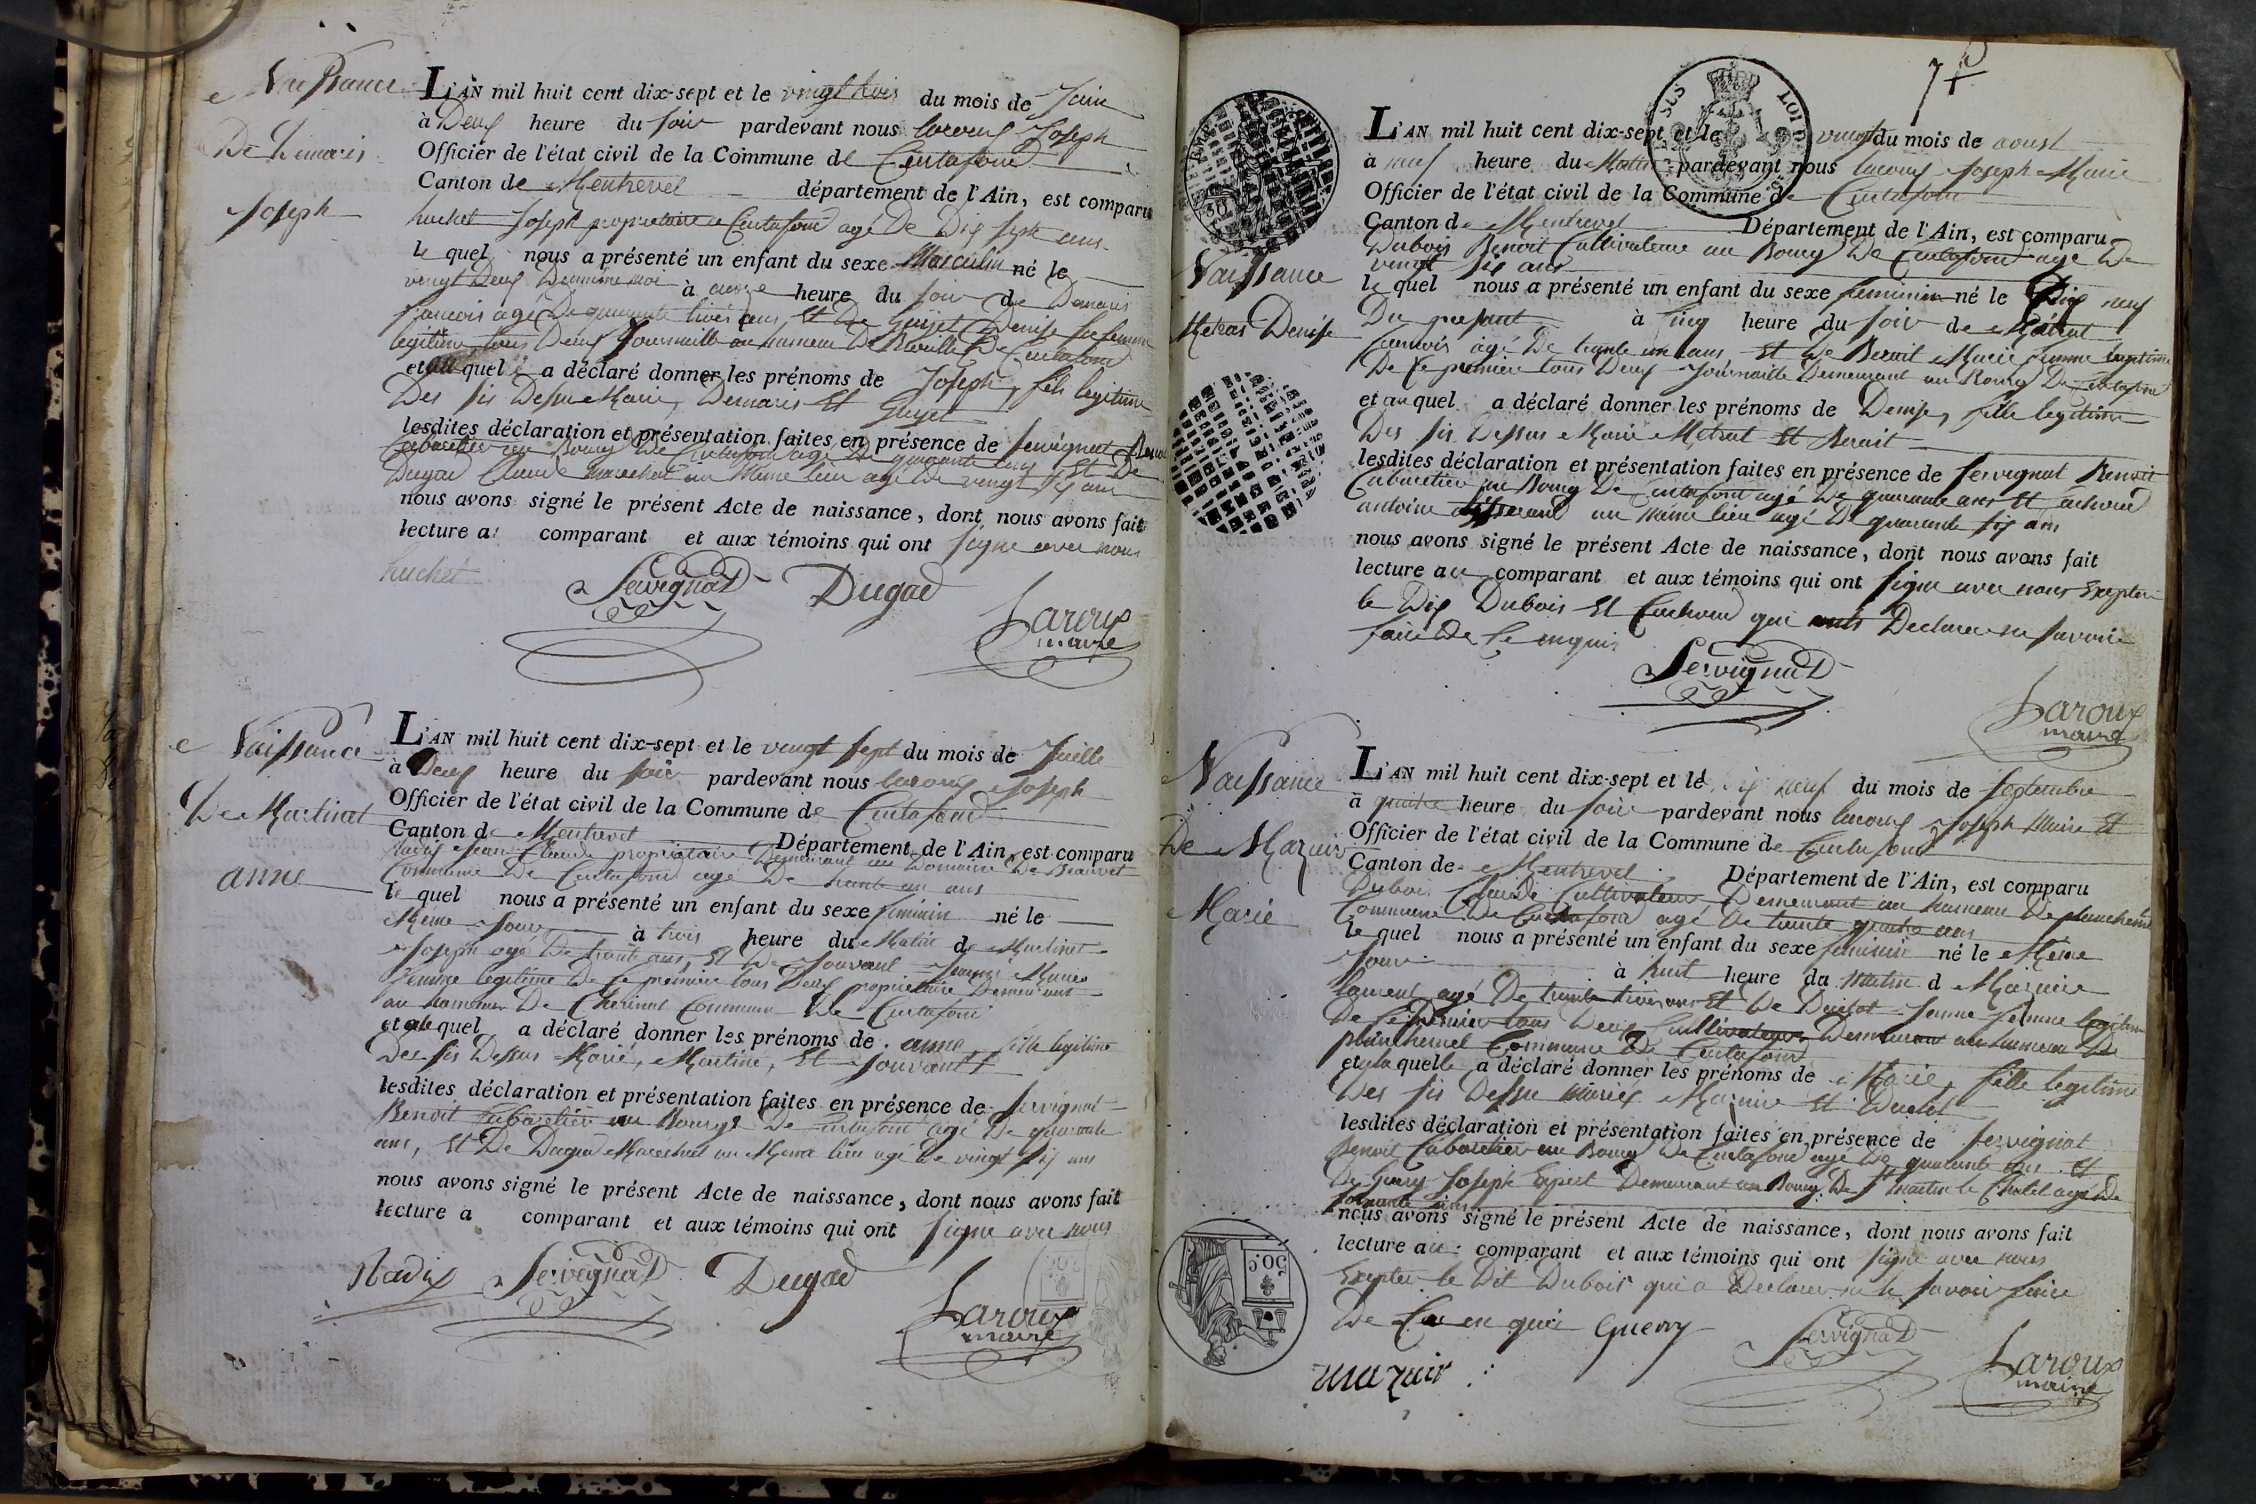 Naissance
De Demaris
Joseph
L'AN mil huit cent dix-sept et le vingt trois du mois de Juin
à Deux heure du soir pardevant nous Laroux Joseph
Officier de l'état civil de la Commune de Curtafond
Canton de Montrevel département de l'Ain, est comparu
huchet Joseph propriétaire a Curtafond agé De Dix sept ans
le quel nous a présenté un enfant du sexe Masculin né le
vingt Deux Du même moi à onze heure du soir de Demaris
francois agé De quarante trois ans, Et De Guyet Denise sa femme
legitime tous Deux Journaille au hameau De De Curtafond
et au quel a déclaré donner les prénoms de Joseph, fils legitime
Des sis Dessu Marie, Demaris Et Guyet
lesdites déclaration et présentation faites en présence de Servignat Benoit
Cabaretier au Bourg De Curtafond agé De quarante ans Et De
Dugad Claude marechal au même lieu agé De vingt six ans
nous avons signé le présent Acte de naissance, dont nous avons fait
lecture au comparant et aux témoins qui ont signe avec nous
huchet Servignat Dugad
Laroux
maire
Naissance
De Martinet
anne
L'AN mil huit cent dix-sept et le vingt sept du mois de Juille
à Deux heure du soir pardevant nous Laroux Joseph
Officier de l'état civil de la Commune de Curtafond
Canton de Montrevel Département de l'Ain, est comparu
Nadix Jean Claude propriétaire Demeurant au Domaine De
Commune De Curtafond agé De trente un ans
le quel nous a présenté un enfant du sexe feminin né le
Même Jour à trois heure du Matin de Martinet
Joseph agé De trente ans, Et De Jouvant Jeanne Marie
femme legitime De Ce premier tous Deux propriétaire Demeurant
au hameau De Commune De Curtafond
et a quel a déclaré donner les prénoms de anne fille legitime
Des sis Dessus Marié, Martine, Et Jouvant
lesdites déclaration et présentation faites en présence de Servignat
Benoit Cabaretier au Bourg De Curtafond agé De quarante
ans, Et De Dugad Maréchal au Même lieu agé De vingt six ans
nous avons signé le présent Acte de naissance, dont nous avons fait
lecture a comparant et aux témoins qui ont signe avec nous
Nadix Servignat Dugad
Laroux
maire
Naissance
Metras Denise
L'AN mil huit cent dix-sept et le vingt du mois de aoust
à neuf heure du Matin pardevant nous Laroux Joseph Maire
Officier de l'état civil de la Commune de Curtafond
Canton de Montrevel Département de l'Ain, est comparu
Dubois Benoit Cultivateur au Bourg De Curtafond agé De
vingt six ans
le quel nous a présenté un enfant du sexe feminin né le Dix neuf
Du présent à Cinq heure du soir de Métrat
francois agé De trente un ans, Et De Benoit Marie femme legitime
De Ce premier tous Deux Journaille Demeurant au Bourg De Curtafond
et au quel a déclaré donner les prénoms de Denise, fille legitime
Des sis Dessus Marié Metrat Et Benoit
lesdites déclaration et présentation faites en présence de Servignat Benoit
Cabaretier au Bourg De Curtafond agé De quarante ans Et
antoine au même lieu agé De quarante six ans
nous avons signé le présent Acte de naissance, dont nous avons fait
lecture au comparant et aux témoins qui ont signe avec nous Excepter
le Dis Dubois Et qui onts Declarer ne savoir
faire De Ce enquis
Servignat
Laroux
maire
Naissance
De Mazuir
Marie
L'AN mil huit cent dix-sept et le dix neuf du mois de septembre
à quatre heure du soir pardevant nous Laroux Joseph Maire Et
Officier de l'état civil de la Commune de Curtafond
Canton de Montrevel Département de l'Ain, est comparu
Dubois Claude Cultivateur Demeurant au hameau De
Commune De Curtafond agé De trente quatre ans
le quel nous a présenté un enfant du sexe feminin né le Même
Jour à huit heure du matin d Mazuire
laurent agé De trente trois ans Et De Duclot Jeanne femme legitime
De Ce Premier tous Deux Cultivateurs Demeurant au hameau De
Commune De Curtafond
et a la quelle a déclaré donner les prénoms de Marie, fille legitime
Des sis Dessu mariés Mazuire Et Duclot
lesdites déclaration et présentation faites en présence de Servignat
Benoit Cabaretier au Bourg De Curtafond agé De quarante ans Et
De Guery Joseph Expert Demeurant au Bourg De St martin le Chatel agé De
ans
nous avons signé le présent Acte de naissance, dont nous avons fait
lecture au comparant et aux témoins qui ont signe avec nous
Excepter le Dit Dubois qui a Declarer ne le savoir faire
De Ce en quis Guerry Servignat
mazuir
Laroux
maire